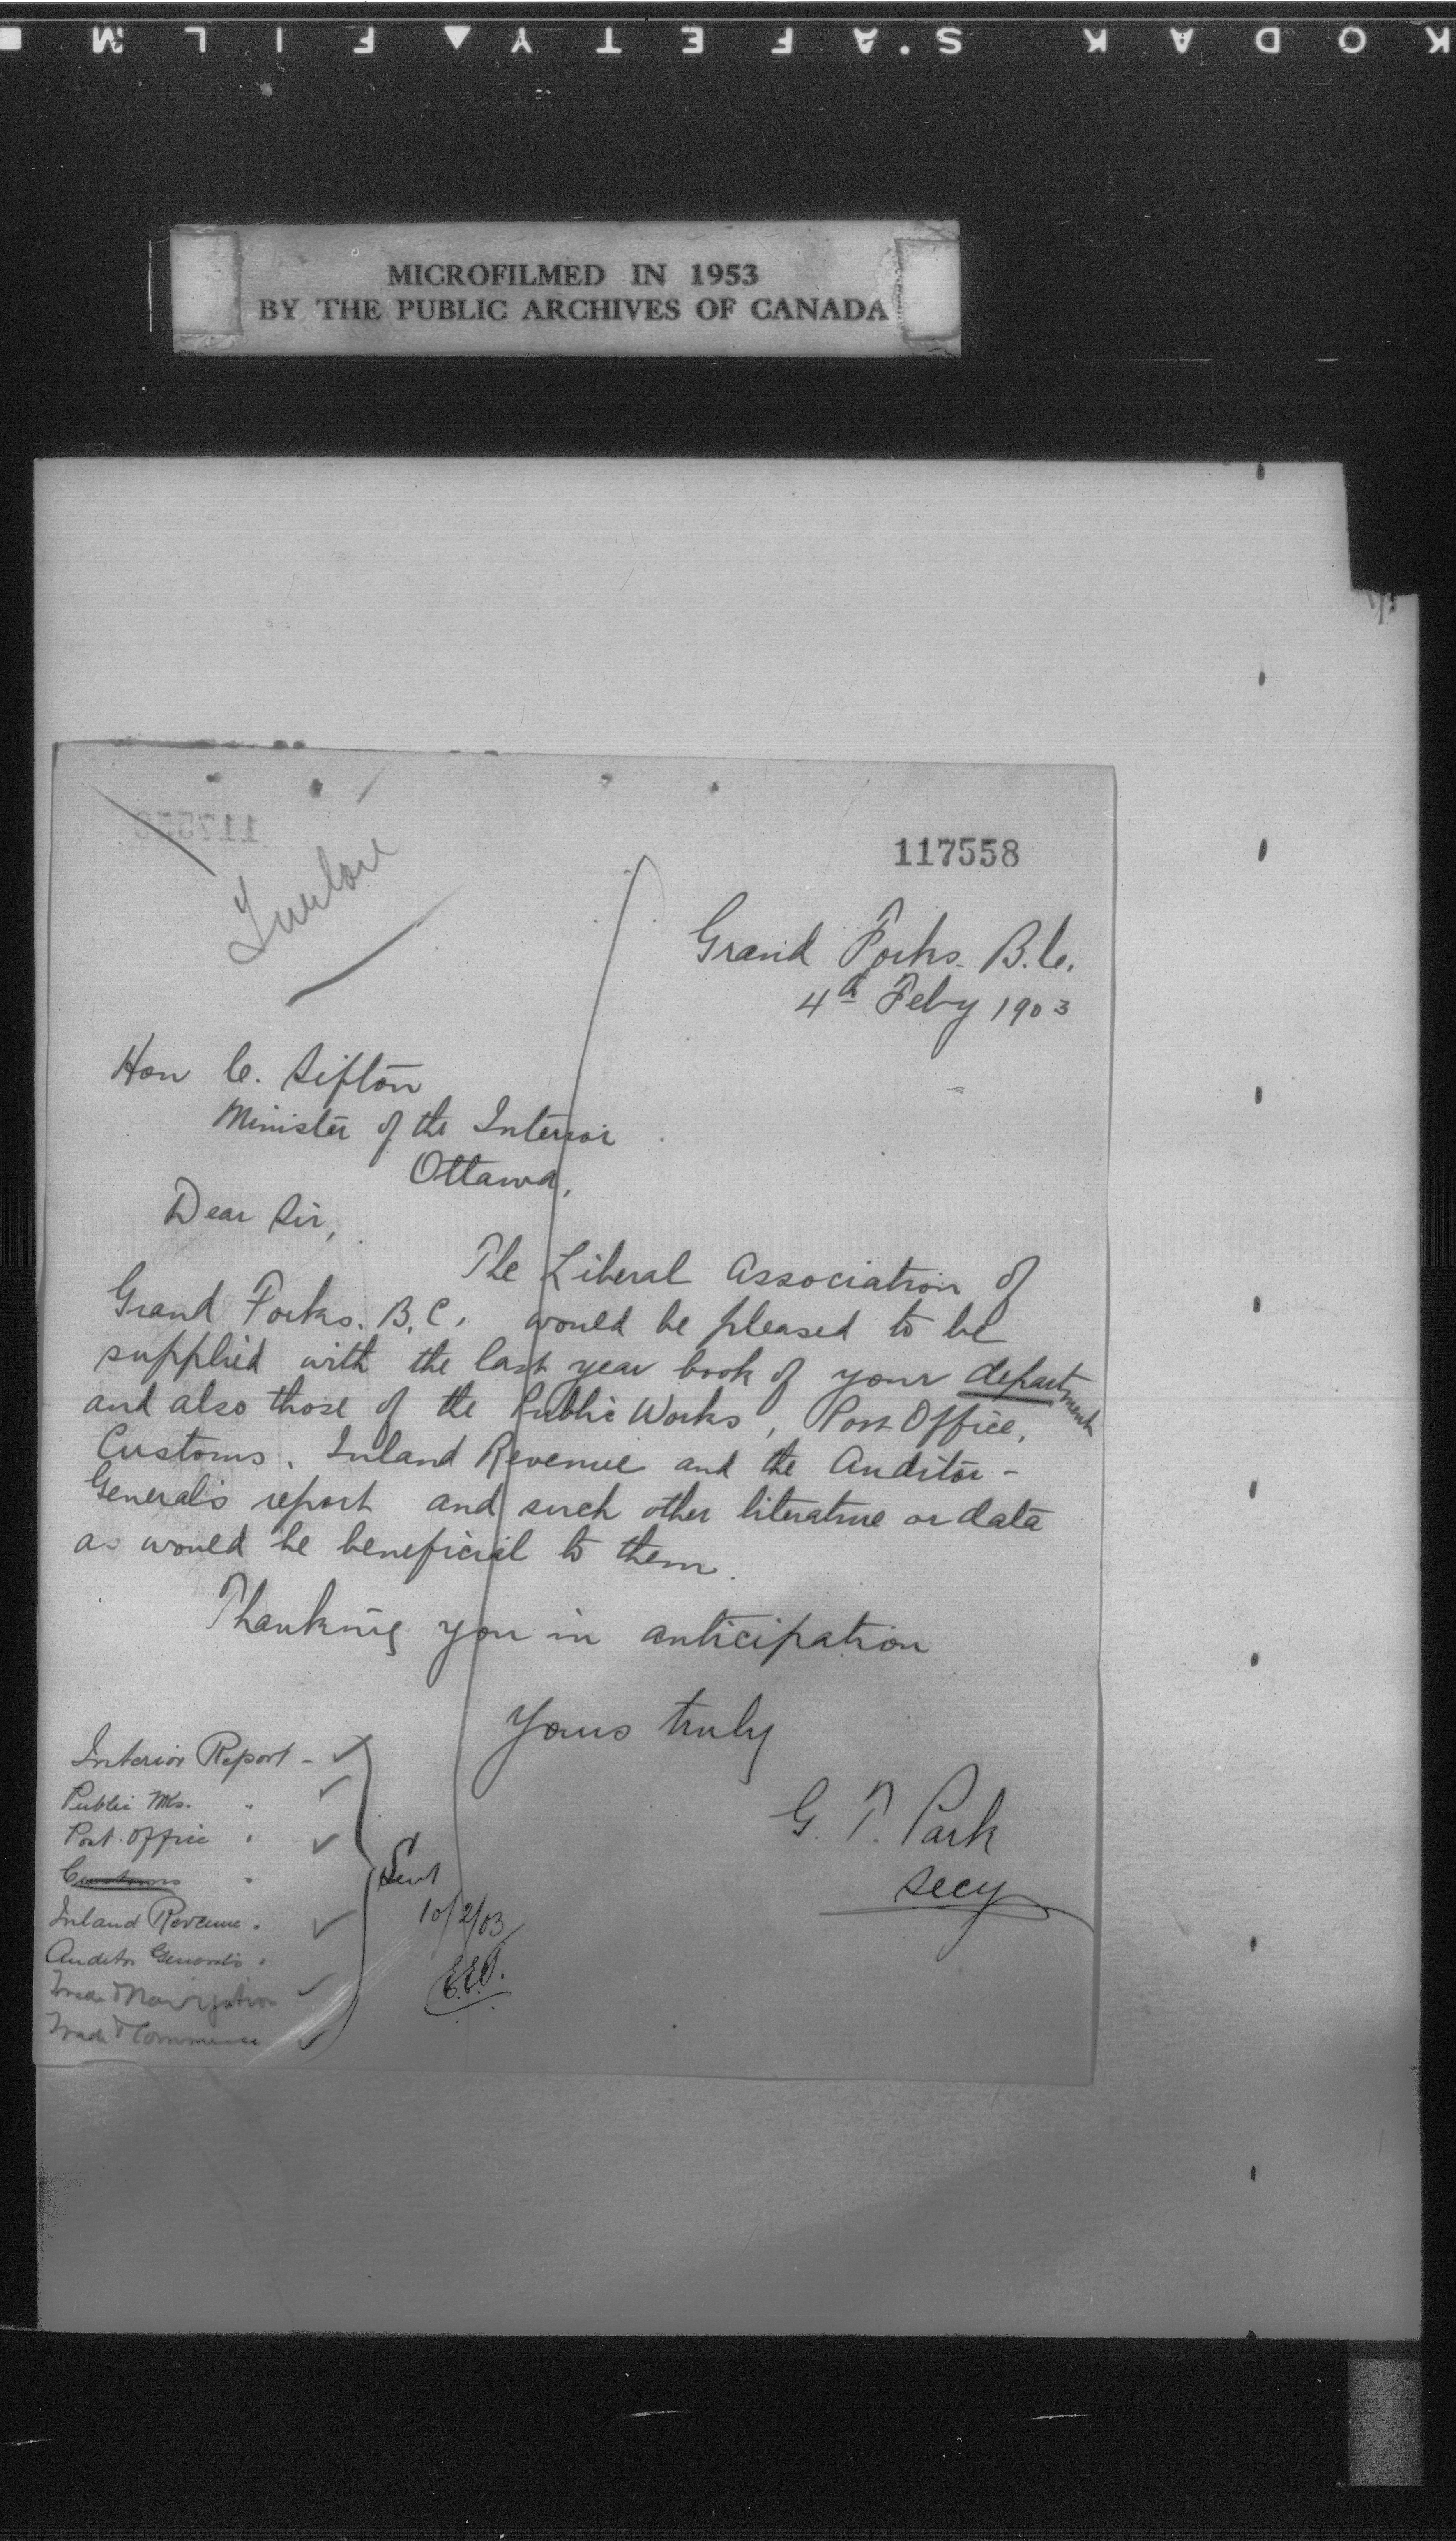 KODAK SAFETY FILM
MICROFILMED IN 1953
BY THE PUBLIC ARCHIVES OF CANADA
117558
Grand Forks. B.C.
4th Feby 1903
Hon C. Sifton
Minister of the Interior
Ottawa,
Dear Sir,
The Liberal Association of
Grand Forks. B.C. would be pleased to be
supplied with the last year book of your department
and also those of the Public Works, Post Office,
Customs, Inland Revenue and the Auditor-
General's report and such other literature or data
as would be beneficial to them.
Thanking you in anticipation
Yours truly
G. T. Park
Secy
Interior Report - ✓
Public Wks. " ✓
Post Office " ✓
Customs "
Inland Revenue " ✓
Auditor General's "
Trade & Navigation ✓
Trade & Commerce ✓
Sent
10/2/03